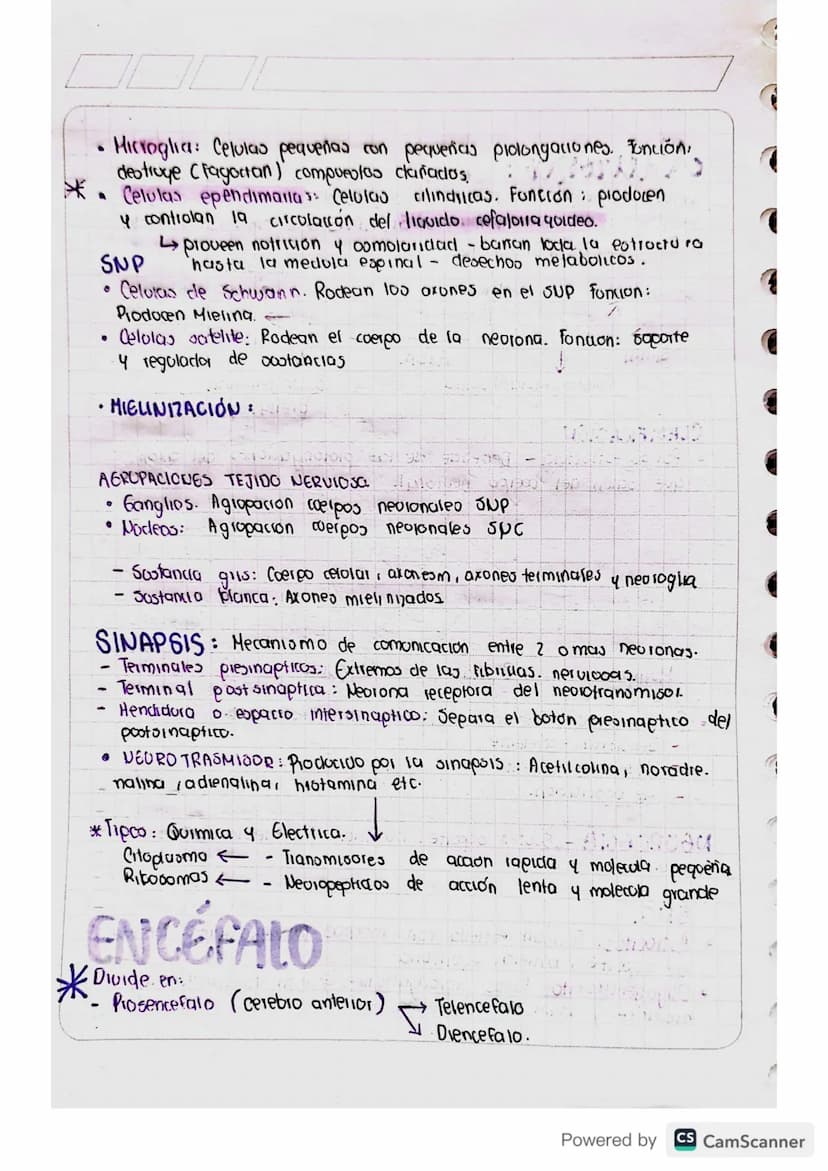 • Microglia: Celulas pequeñas con pequeñas prolongaciones. Función:
destruye (Fagocitan) compuestos dañados.
* • Celulas ependimarias: Celulas cilindricas. Función: producen
y controlan la circulación del liquido. cefalorraquideo.
↳ proveen nutrición y osmolaridad - bañan toda la estructura
SNP hasta la medula espinal - desechos metabolicos.
• Celulas de Schwann. Rodean los axones en el SNP Funcion:
Producen Mielina. ←
• Celulas satelite: Rodean el cuerpo de la neurona. Función: soporte
y regulador de sustancias ↓
• MIELINIZACIÓN:
AGRUPACIONES TEJIDO NERVIOSO
• Ganglios. Agrupación cuerpos neuronales SNP
• Nucleos: Agrupación cuerpos neuronales SNC
- Sustancia gris: Cuerpo celular, axonesm, axones terminales y neuroglia
- Sustancia blanca: Axones mielinizados
SINAPSIS: Mecanismo de comunicación entre 2 o mas neuronas.
- Terminales presinapticos: Extremos de las fibrillas. nerviosas.
- Terminal postsinaptica: Neurona receptora del neurotransmisor.
- Hendidura o espacio intersinaptico: Separa el botón presinaptico del
postsinaptico.
• NEUROTRASMISOR: Producido por la sinapsis: Acetilcolina, noradre.
nalina, adrenalina, histamina etc.
* Tipos: Quimica y Electrica. ↓
Citoplasma ← - Transmisores de acción rapida y molecula pequeña
Ribosomas ← - Neuropeptidos de acción lenta y molecula grande
ENCÉFALO
* Divide en:
- Prosencefalo (cerebro anterior) → Telencefalo
↘ Diencefalo.
Powered by CS CamScanner